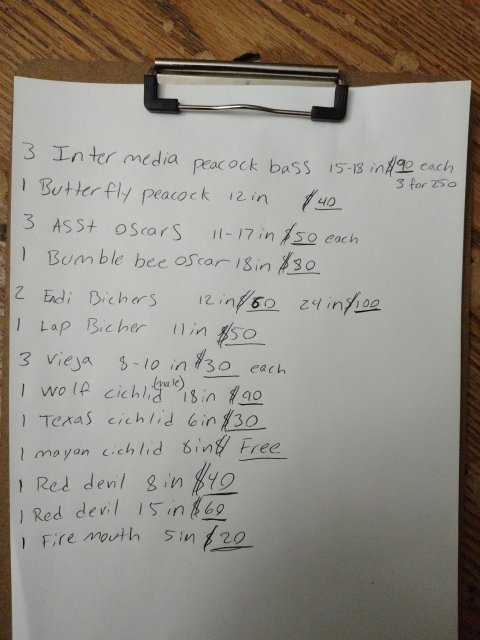 3 Inter media peacock bass 15-18 in $90 each
3 for 250
1 Butterfly peacock 12 in $40
3 Asst oscars 11-17 in $50 each
1 Bumble bee oscar 18 in $80
2 Endi Bichers 12 in $60 24 in $100
1 Lap Bicher 11 in $50
3 vieja 8-10 in $30 each
1 wolf cichlid (male) 18 in $90
1 Texas cichlid 6 in $30
1 mayan cichlid 8 in $ Free
1 Red devil 8 in $40
1 Red devil 15 in $60
1 Fire mouth 5 in $20